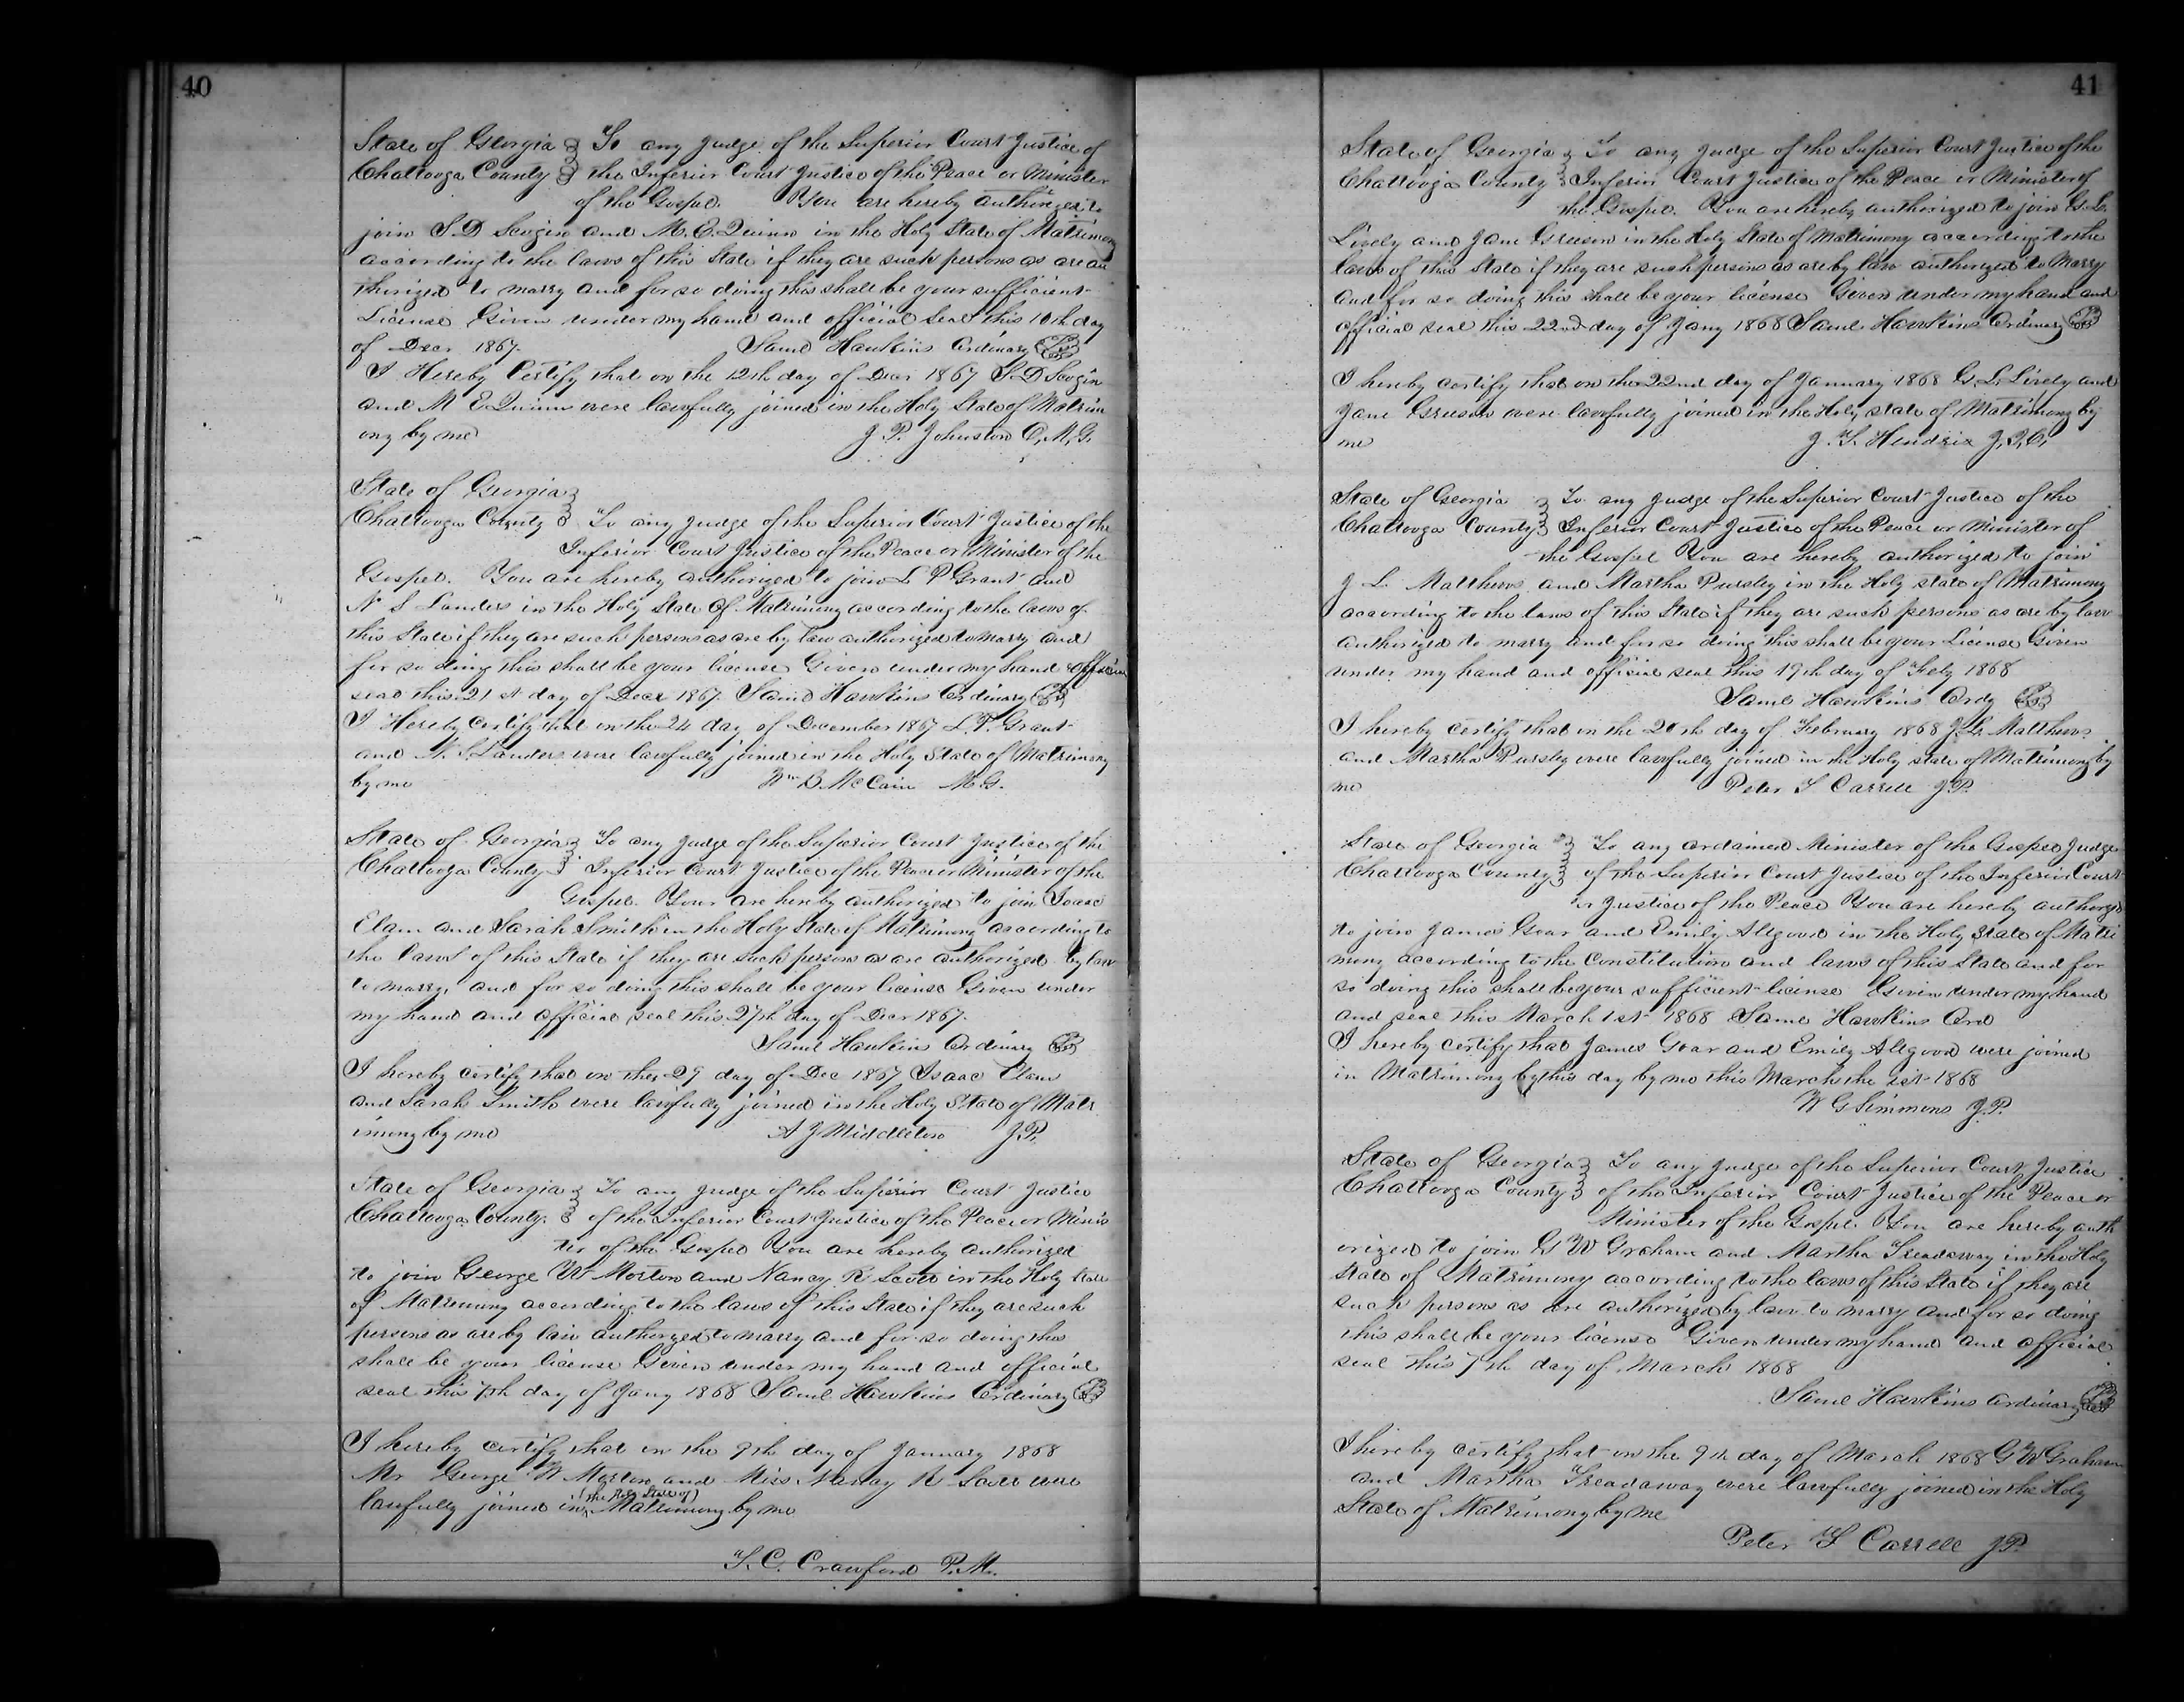 40
State of Georgia } To any Judge of the Superior Court Justice of
Chattooga County } the Inferior Court Justice of the Peace or Minister
of the Gospel. You are hereby authorized to
join S. D Scogin and M. E. Quinn in the Holy State of Matrimony
according to the laws of this State if they are such persons as are au
thorized to marry and for so doing this shall be your sufficient
License Given under my hand and official seal this 10th day
of Decr 1867. Saml Hawkins Ordinary
I Hereby Certify that on the 12th day of Decr 1867 S. D Scogin
and M E Quinn were lawfully joined in the Holy State of Matrim
ony by me J. P. Johnston O, M, G.
State of Georgia }
Chattooga County } To any Judge of the Superior Court Justice of the
Inferior Court Justice of the Peace or Minister of the
Gospel. You are hereby authorized to join L P Grant and
N S Landers in the Holy State of Matrimony according to the laws of
this State if they are such persons as are by law authorized to marry and
for so doing this shall be your license Given under my hand & official
seal this 21st day of Decr 1867. Saml Hawkins Ordinary
I Hereby certify that on the 24 day of December 1867 L. P. Grant
and N. S. Landers were lawfully joined in the Holy State of Matrimony
by me Wm B McCain M. G.
State of Georgia } To any Judge of the Superior Court Justice of the
Chattooga County } Inferior Court Justice of the Peace or Minister of the
Gospel. Your are hereby authorized to join Isaac
Elam and Sarah Smith in the Holy State of Matrimony according to
the laws of this State if they are such persons as are authorized by law
to marry, and for so doing this shall be your license Given under
my hand and official seal this 27th day of Decr 1867.
Saml Hawkins Ordinary
I hereby certify that on the 29 day of Dec 1867 Isaac Elam
and Sarah Smith were lawfully joined in the Holy State of Matr
imony by me A J Middleton J. P.
State of Georgia } To any Judge of the Superior Court Justice
Chattooga County. } of the Inferior Court Justice of the Peace or Minis
ter of the Gospel You are hereby authorized
to join George W Morton and Nancy R Scott in the Holy State
of Matrimony according to the laws of this State if they are such
persons as are by law authorized to marry and for so doing this
shall be your license Given under my hand and official
seal this 7th day of Jany 1868 Saml Hawkins Ordinary
I hereby certify that on the 9th day of January 1868
Mr George W Morton and Miss Nancy R Scott were
lawfully joined in (the Holy State of) Matrimony by me
T. C. Crawford P. M.
41
State of Georgia } To any Judge of the Superior Court Justice of the
Chattooga County } Inferior Court Justice of the Peace or Minister of
the Gospel. You are hereby authorized to join G. L.
Lively and Jane Greeson in the Holy State of Matrimony according to the
laws of this State if they are such persons as are by law authorized to Marry
and for so doing this shall be your license Given under my hand and
official seal this 22nd day of Jany 1868 Saml Hawkins Ordinary
I hereby certify that on the 22nd day of January 1868 G. L. Lively and
Jane Greeson were lawfully joined in the Holy state of Matrimony by
me J. T. Hendrix J, I, C,
State of Georgia } To any Judge of the Superior Court Justice of the
Chattooga County } Inferior Court Justice of the Peace or Minister of
the Gospel You are hereby authorized to join
J L. Matthews and Martha Pursley in the Holy state of Matrimony
according to the laws of this State if they are such persons as are by law
authorized to marry and for so doing this shall be your License Given
under my hand and official seal this 19th day of Feby 1868
Saml Hawkins Ordy
I hereby certify that on the 20th day of February 1868 J. L. Matthews
and Martha Pursley were lawfully joined in the Holy state of Matrimony by
me Peter T Carrell J P.
State of Georgia } To any ordained Minister of the Gospel Judge
Chattooga County } of the Superior Court Justice of the Inferior Court
or Justice of the Peace You are hereby authorzed
to join James Goar and Emily Allgood in the Holy State of Matri
mony according to the Constitution and laws of this State and for
so doing this shall be your sufficient license Given under my hand
and seal this March 1st 1868 Saml Hawkins Ord
I hereby certify that James Goar and Emily Allgood were joined
in Matrimony by this day by me this March the 1st 1868
W G Simmons J. P.
State of Georgia } To any Judge of the Superior Court Justice
Chattooga County } of the Inferior Court Justice of the Peace or
Minister of the Gospel. You are hereby auth
orized to join G W Graham and Martha Treadaway in the Holy
State of Matrimony according to the laws of this State if they are
such persons as are authorized by law to marry and for so doing
this shall be your license Given under my hand and official
seal this 7th day of March 1868
Saml Hawkins Ordinary
I hereby certify that on the 9th day of March 1868 G W Graham
and Martha Treadaway were lawfully joined in the Holy
State of Matrimony by me
Peter T Carrell J P.